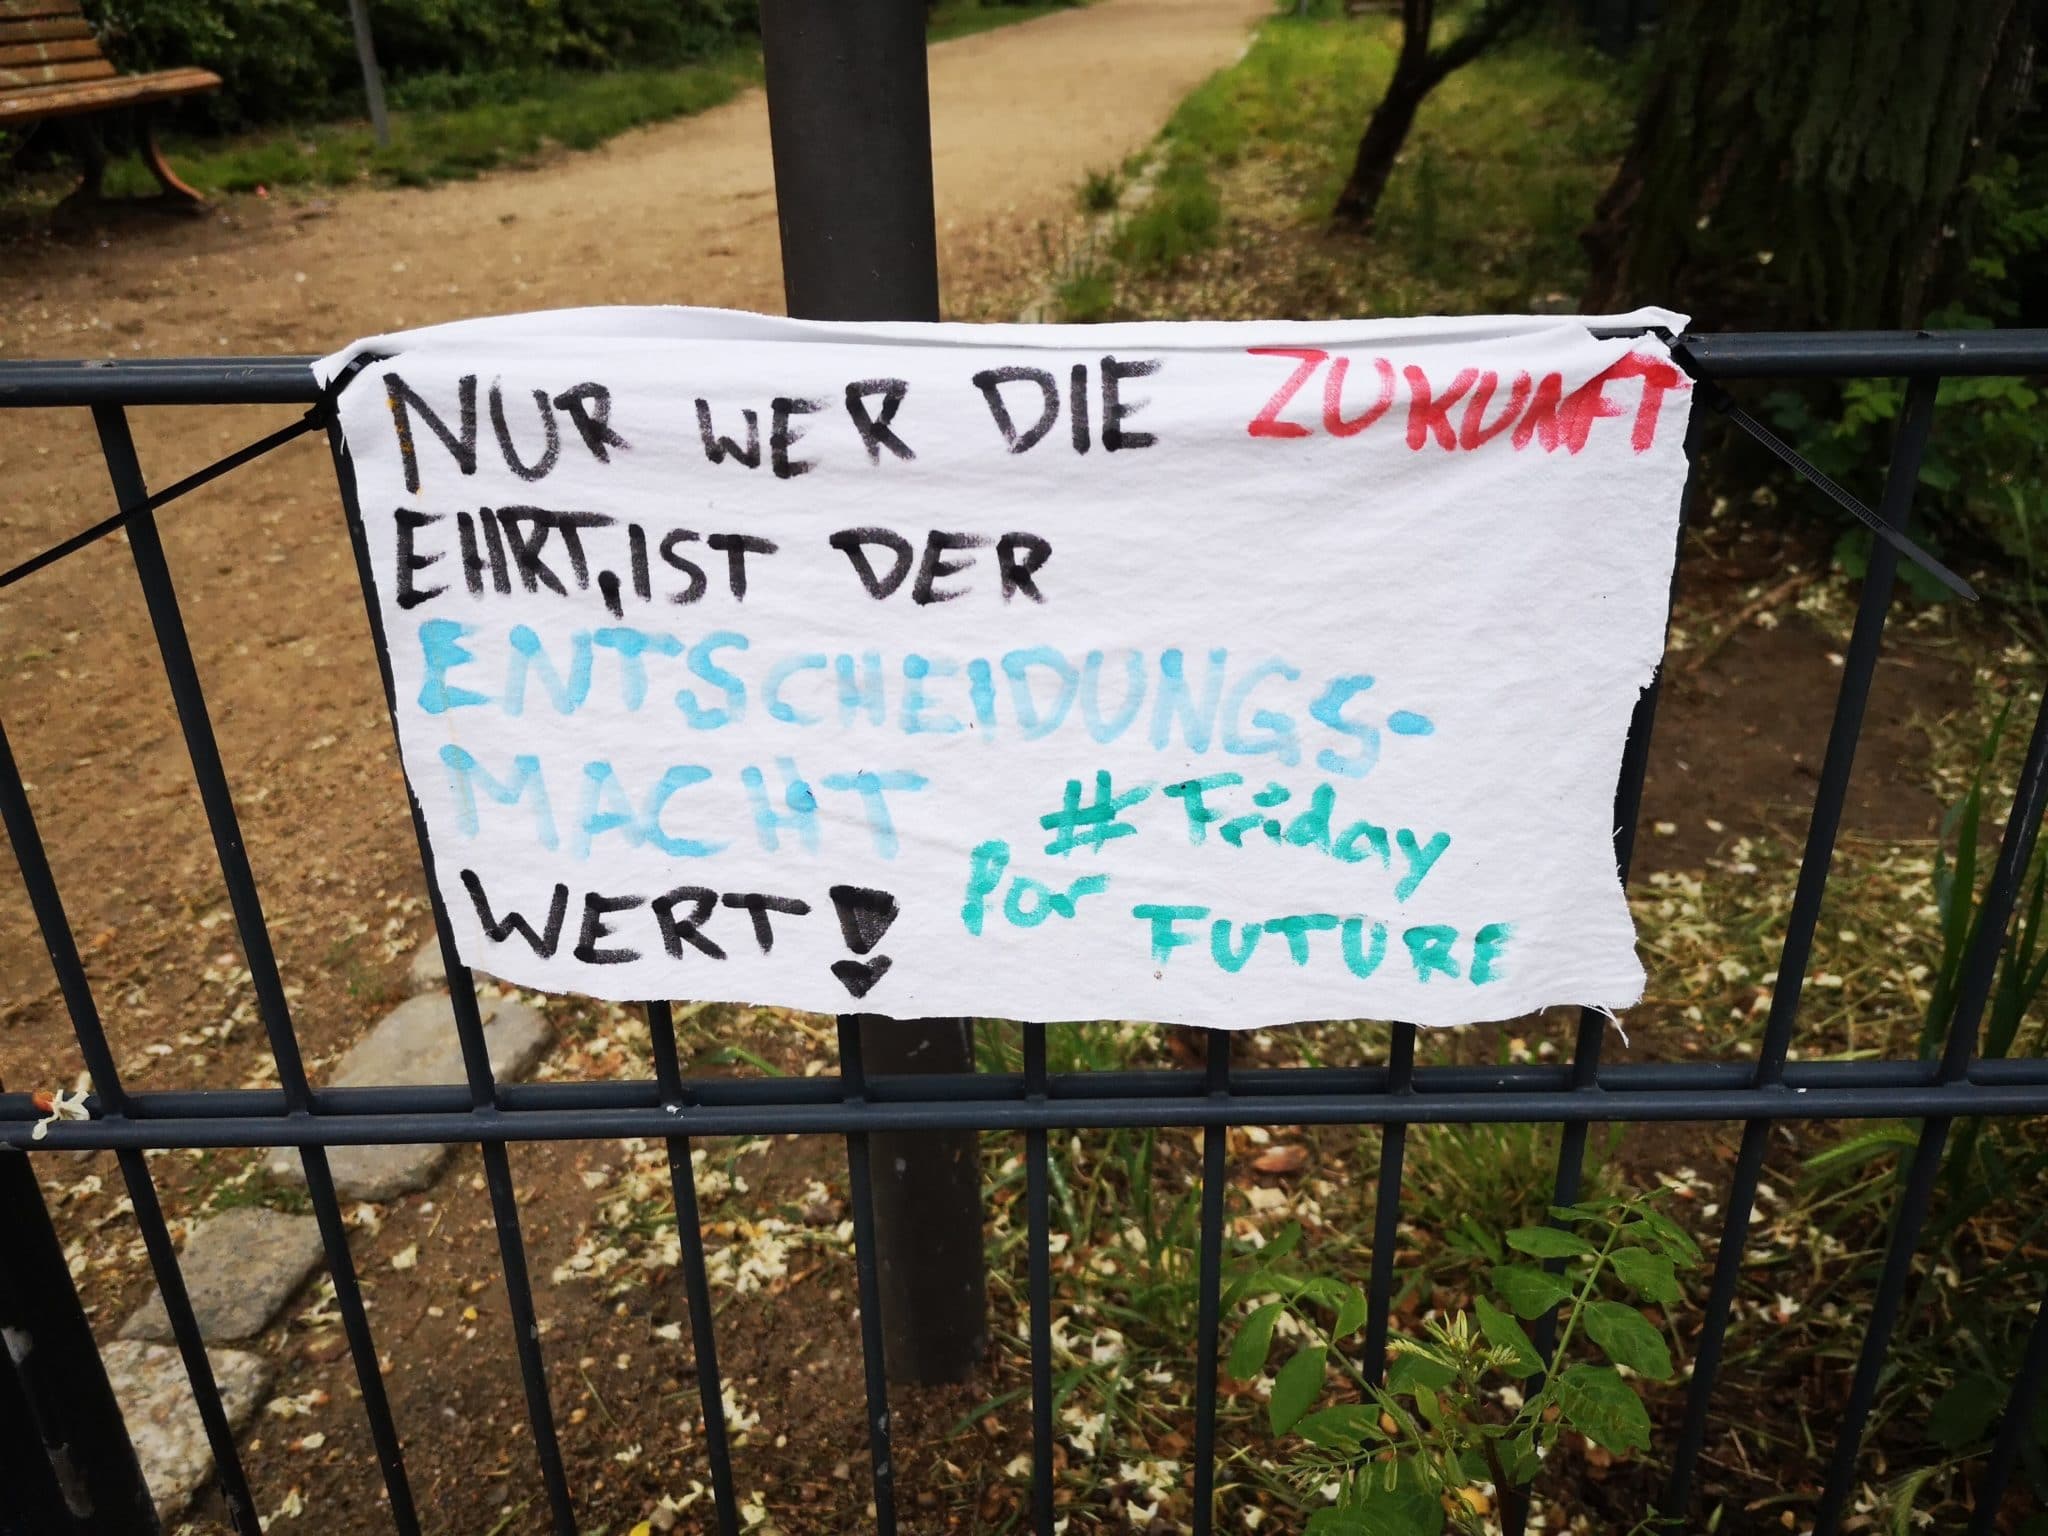 NUR WER DIE ZUKUNFT
EHRT, IST DER
ENTSCHEIDUNGS-
MACHT
WERT!
#Friday
For FUTURE